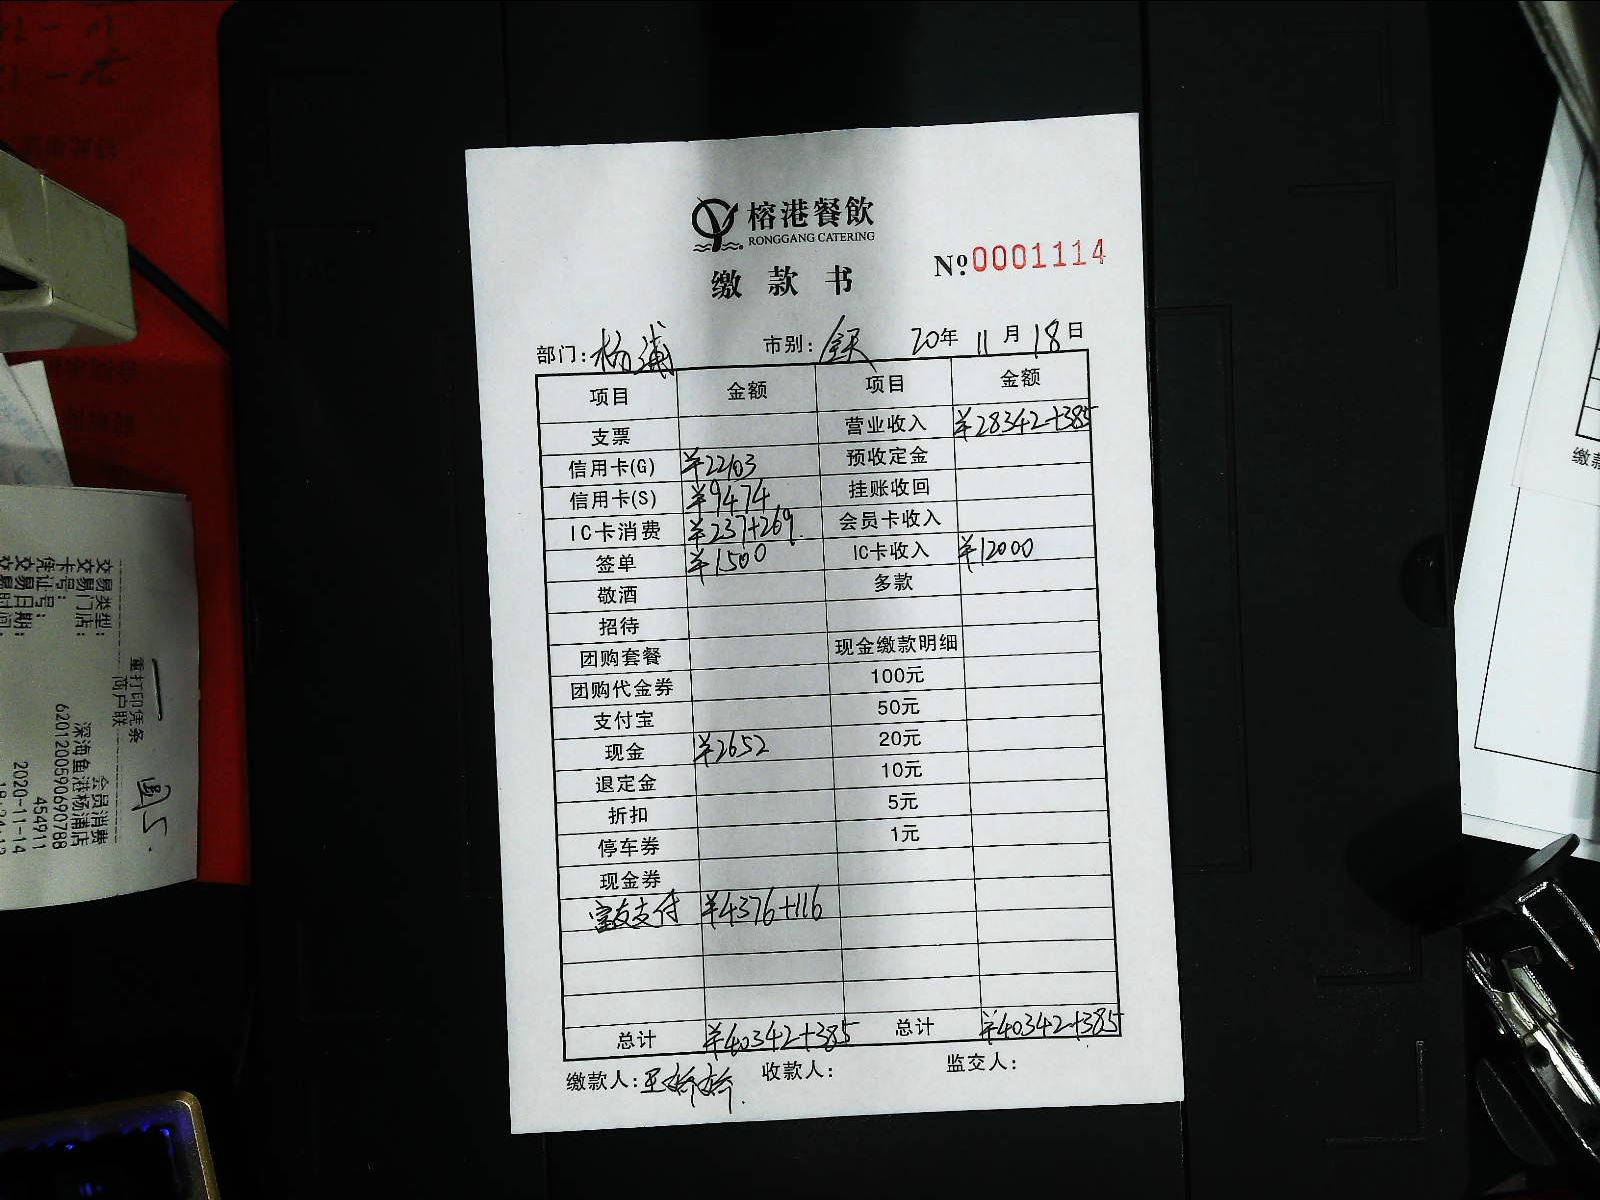 榕港餐飲
RONGGANG CATERING
缴款书
№0001114
部门: 杨浦 市别: 全天 20年 11月 18日
项目 金额 项目 金额
支票 营业收入 ¥28342+385
信用卡(G) ¥22103 预收定金
信用卡(S) ¥9474 挂账收回
IC卡消费 ¥237+269 会员卡收入
签单 ¥1500 IC卡收入 ¥12000
敬酒 多款
招待
团购套餐 现金缴款明细
团购代金券 100元
支付宝 50元
现金 ¥2652 20元
退定金 10元
折扣 5元
停车券 1元
现金券
富友支付 ¥4376+116
总计 ¥40342+385 总计 ¥40342+385
缴款人: 王婷婷 收款人: 监交人:
重打印凭条
商户联
会员消费
深海鱼港杨浦店
6201200590690788
454911
2020-11-14
交易类型:
交易门店:
卡号:
凭证号:
交易日期:
交易时间:
缴款